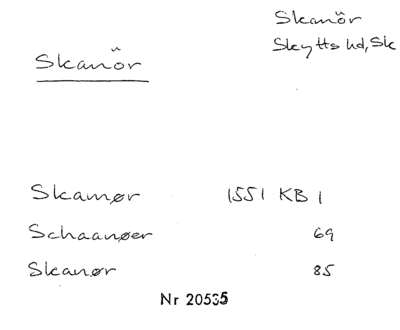 Skanör
Skytts hd, Sk
Skanör
Skamør 1551 KB 1
Schaanøer 69
Skanør 85
Nr 20535